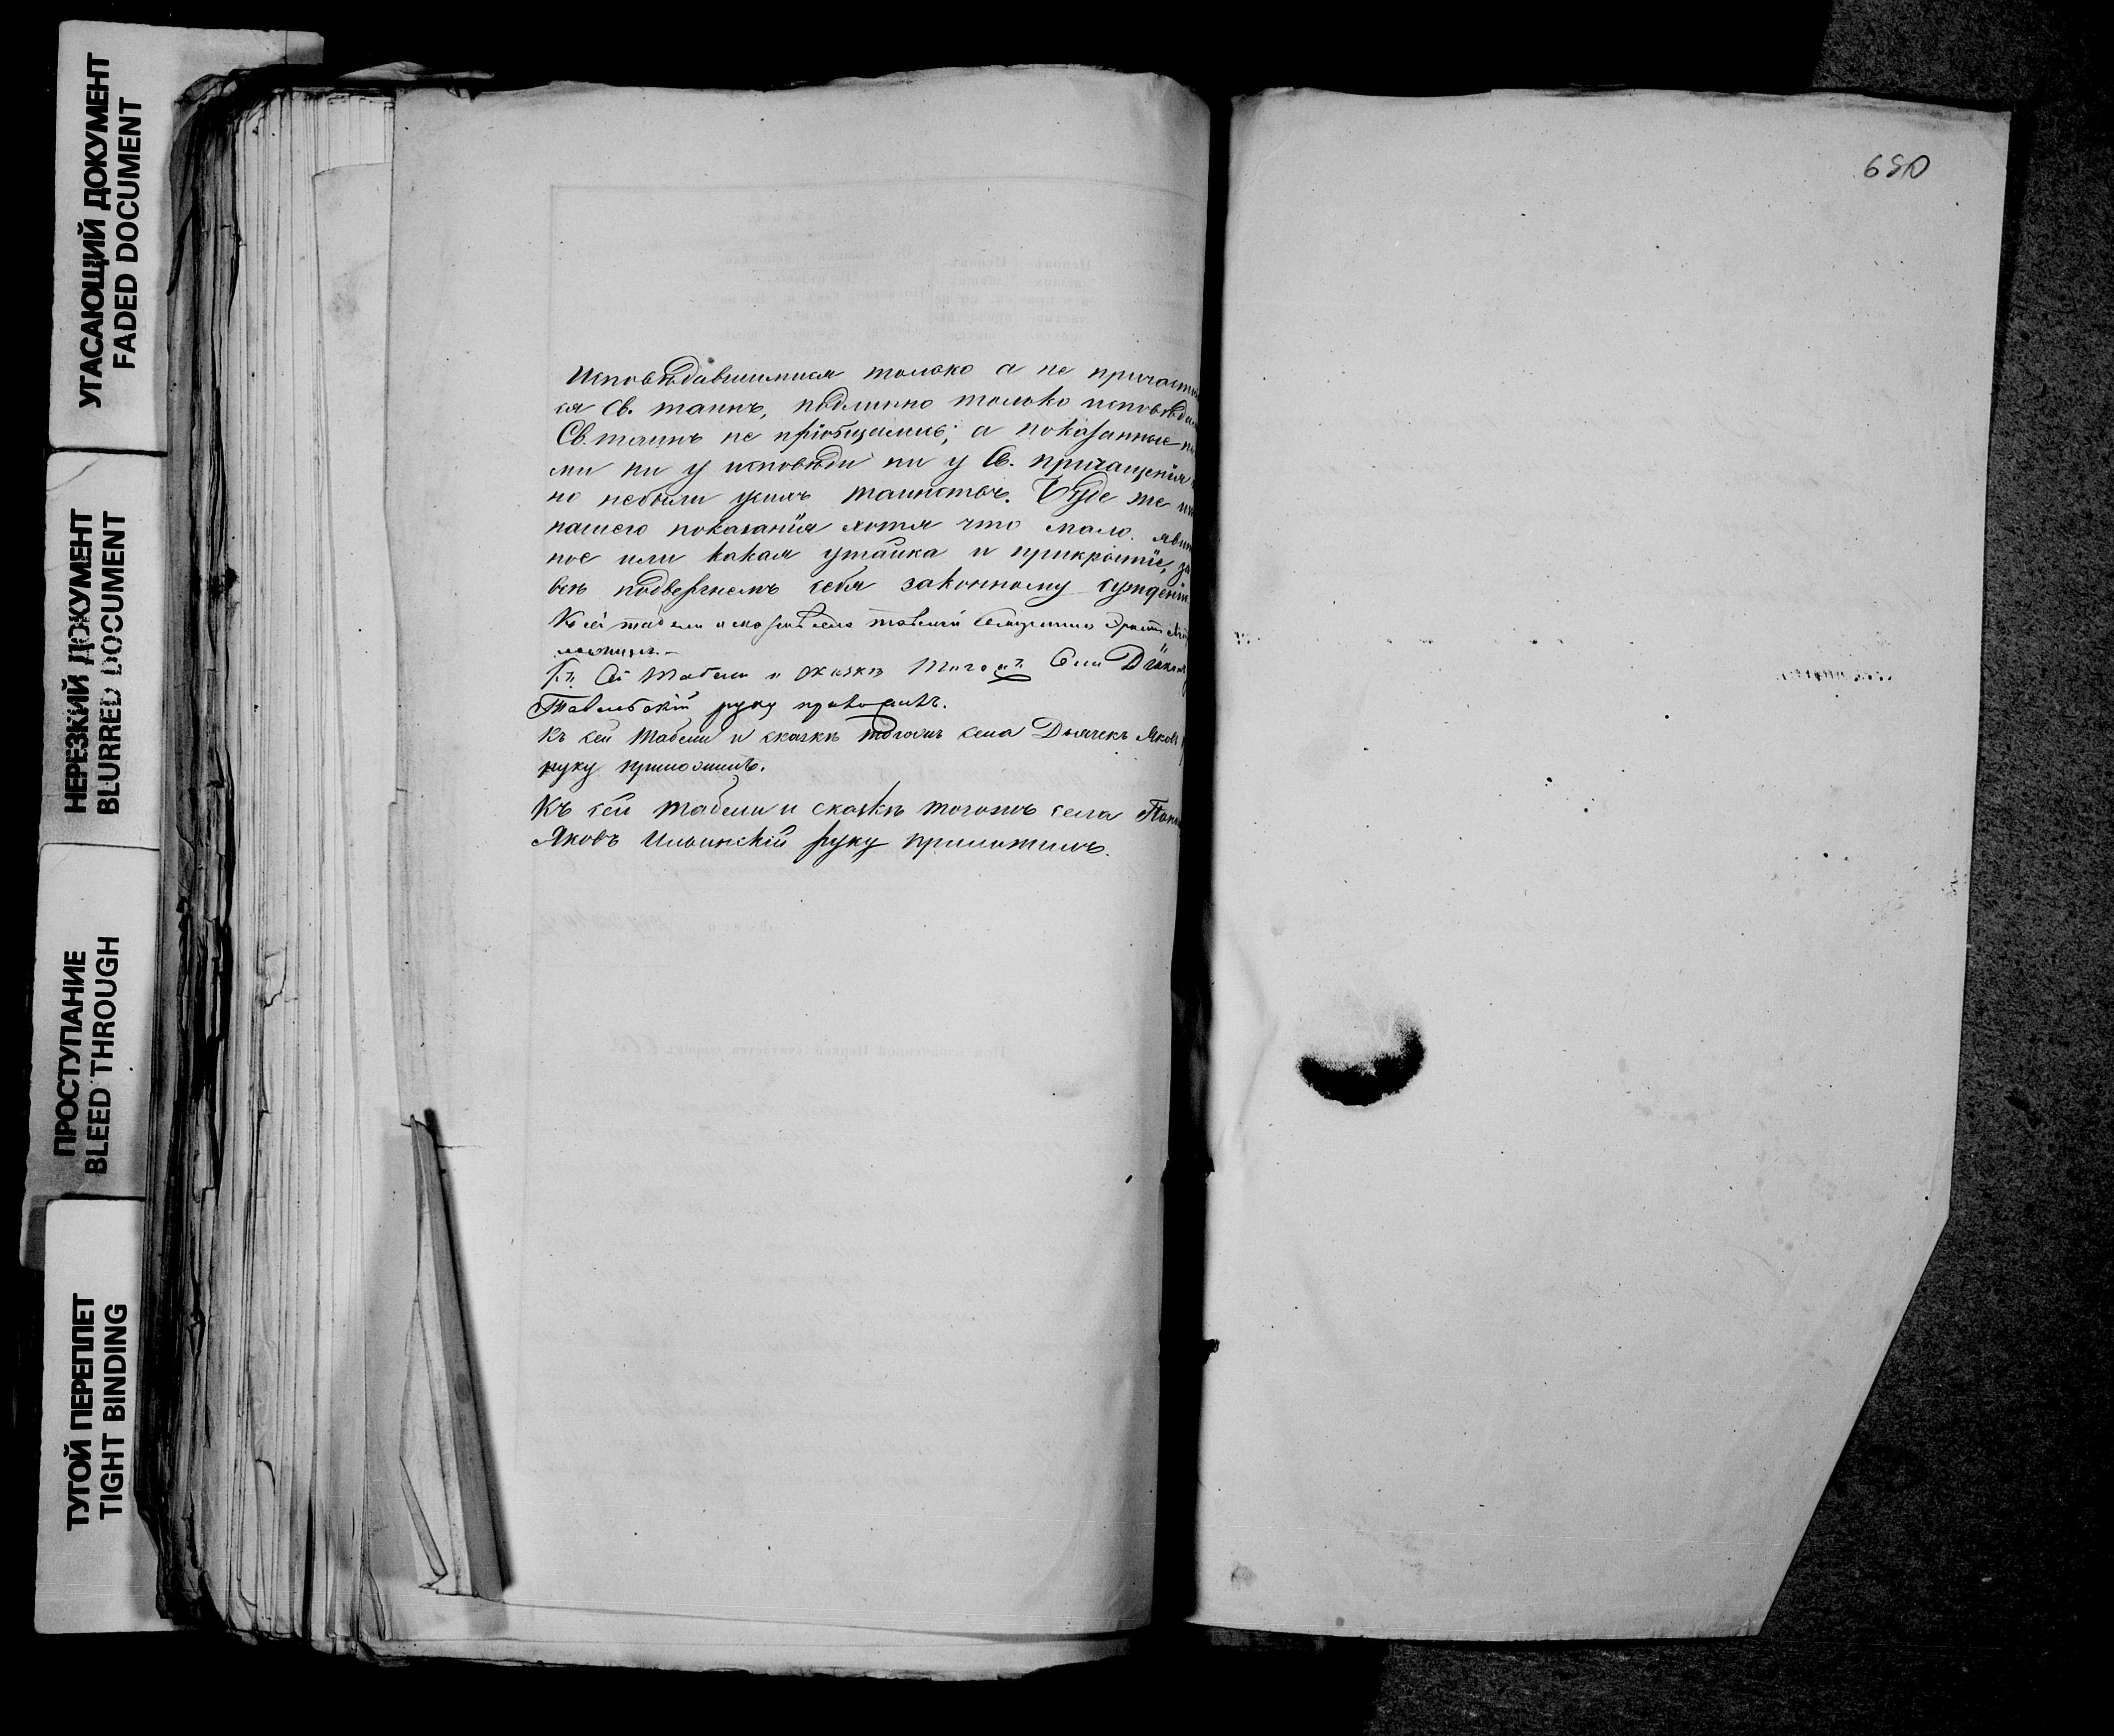 УГАСАЮЩИЙ ДОКУМЕНТ
FADED DOCUMENT
НЕРЕЗКИЙ ДОКУМЕНТ
BLURRED DOCUMENT
ПРОСТУПАНИЕ
BLEED THROUGH
ТУГОЙ ПЕРЕПЛЕТ
TIGHT BINDING
Исповѣдавшимися только а не причасти
ся Св. таинъ, подлинно только исповѣда
Св. таинъ не пріобщались; а показанные
ми ни у исповѣди ни у Св. причащенія
но небыли у таинствъ. Буде же
нашего показанія хотя что мало яви
ное или какая утайка и прикрытіе, за
все подвергнемъ себя законному сужденію
Къ сей табели и села Священникъ
Къ Сей Табели и сказкѣ тогожъ Села Діаконъ
Тавельскій руку приложилъ.
Къ сей табели и сказкѣ тогожъ села Дьячекъ Яковъ
руку приложилъ.
Къ сей табели и сказкѣ тогожъ села Поно
Яковъ Ильинскій руку приложилъ.
690